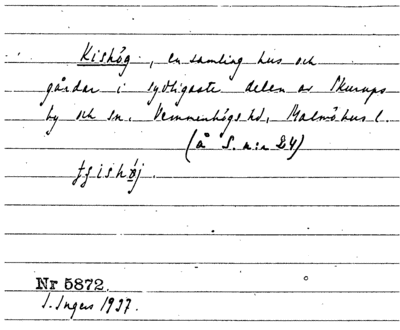 Kishög, en samling hus och
gårdar i sydligaste delen av Skurups
by och sn. Vemmenhögs hd, Malmöhus l.
(å S. n:r 24)
Nr 5872.
I. Ingers 1937.